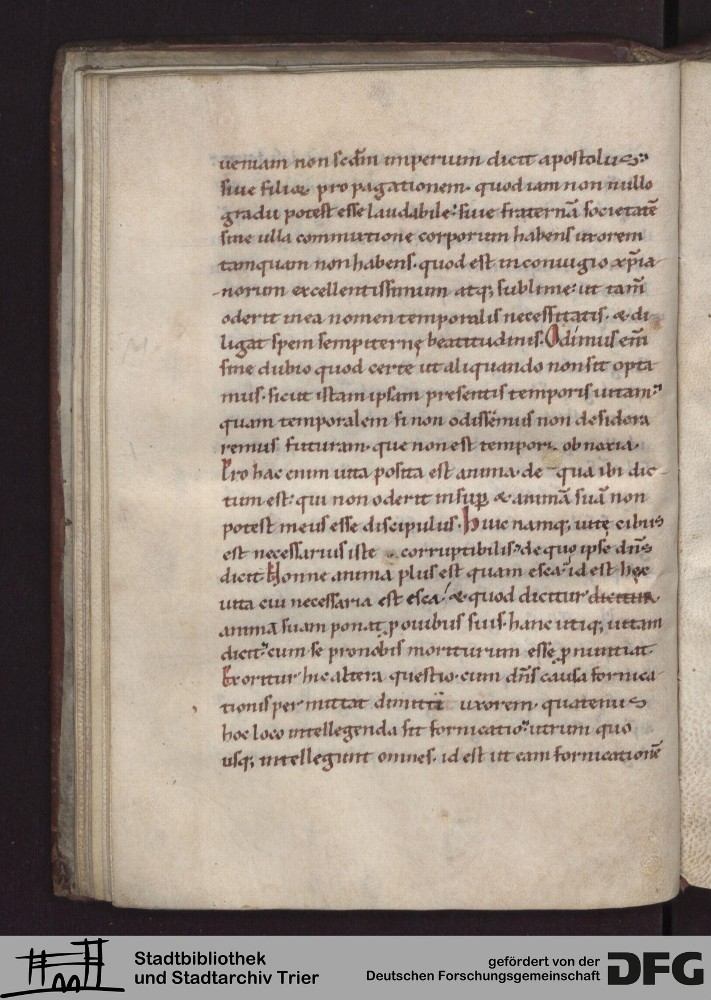 ueniam non scdm̄ imperium dicit apostolus.
siue filioꝝ propagationem. quod iam non nullo
gradu potest esse laudabile. siue fraternā societatē
sine ulla commixtione corporum habens uxorem
tamquam non habens. quod est in coniugio xp̄ia
norum excellentissimum atq; sublime. ut tam̄
oderit in ea nomen temporalis necessitatis. & di
ligat spem sempiternę beatitudinis. Odimus enī
sine dubio quod certe ut aliquando non sit opta
mus. sicut istam ipsam presentis temporis uitam.
quam temporalem si non odissemus non desidera
remus futuram. que non est tempori obnoxia.
Pro hac enim uita posita est anima. de qua ibi dic
tum est. qui non oderit insup̱ & animā suā non
potest meus esse discipulus. Huic namq; uitę cibus
est necessarius iste corruptibilis. de quo ipse dn̄s
dicit. Nonne anima plus est quam esca. id est hęc
uita cui necessaria est esca. & quod dicitur dicitur
animā suam ponat ꝓ ouibus suis. hanc utiq; uitam
dicit. cum se pro nobis moriturum esse ꝓnuntiat.
Exoritur hic altera questio. cum dn̄s causa fornica
tionis permittat dimitti uxorem. quatenus
hoc loco intellegenda sit fornicatio. utrum quo
usq; intellegunt omnes. id est ut eam fornicationē
Stadtbibliothek
und Stadtarchiv Trier
gefördert von der
Deutschen Forschungsgemeinschaft
DFG